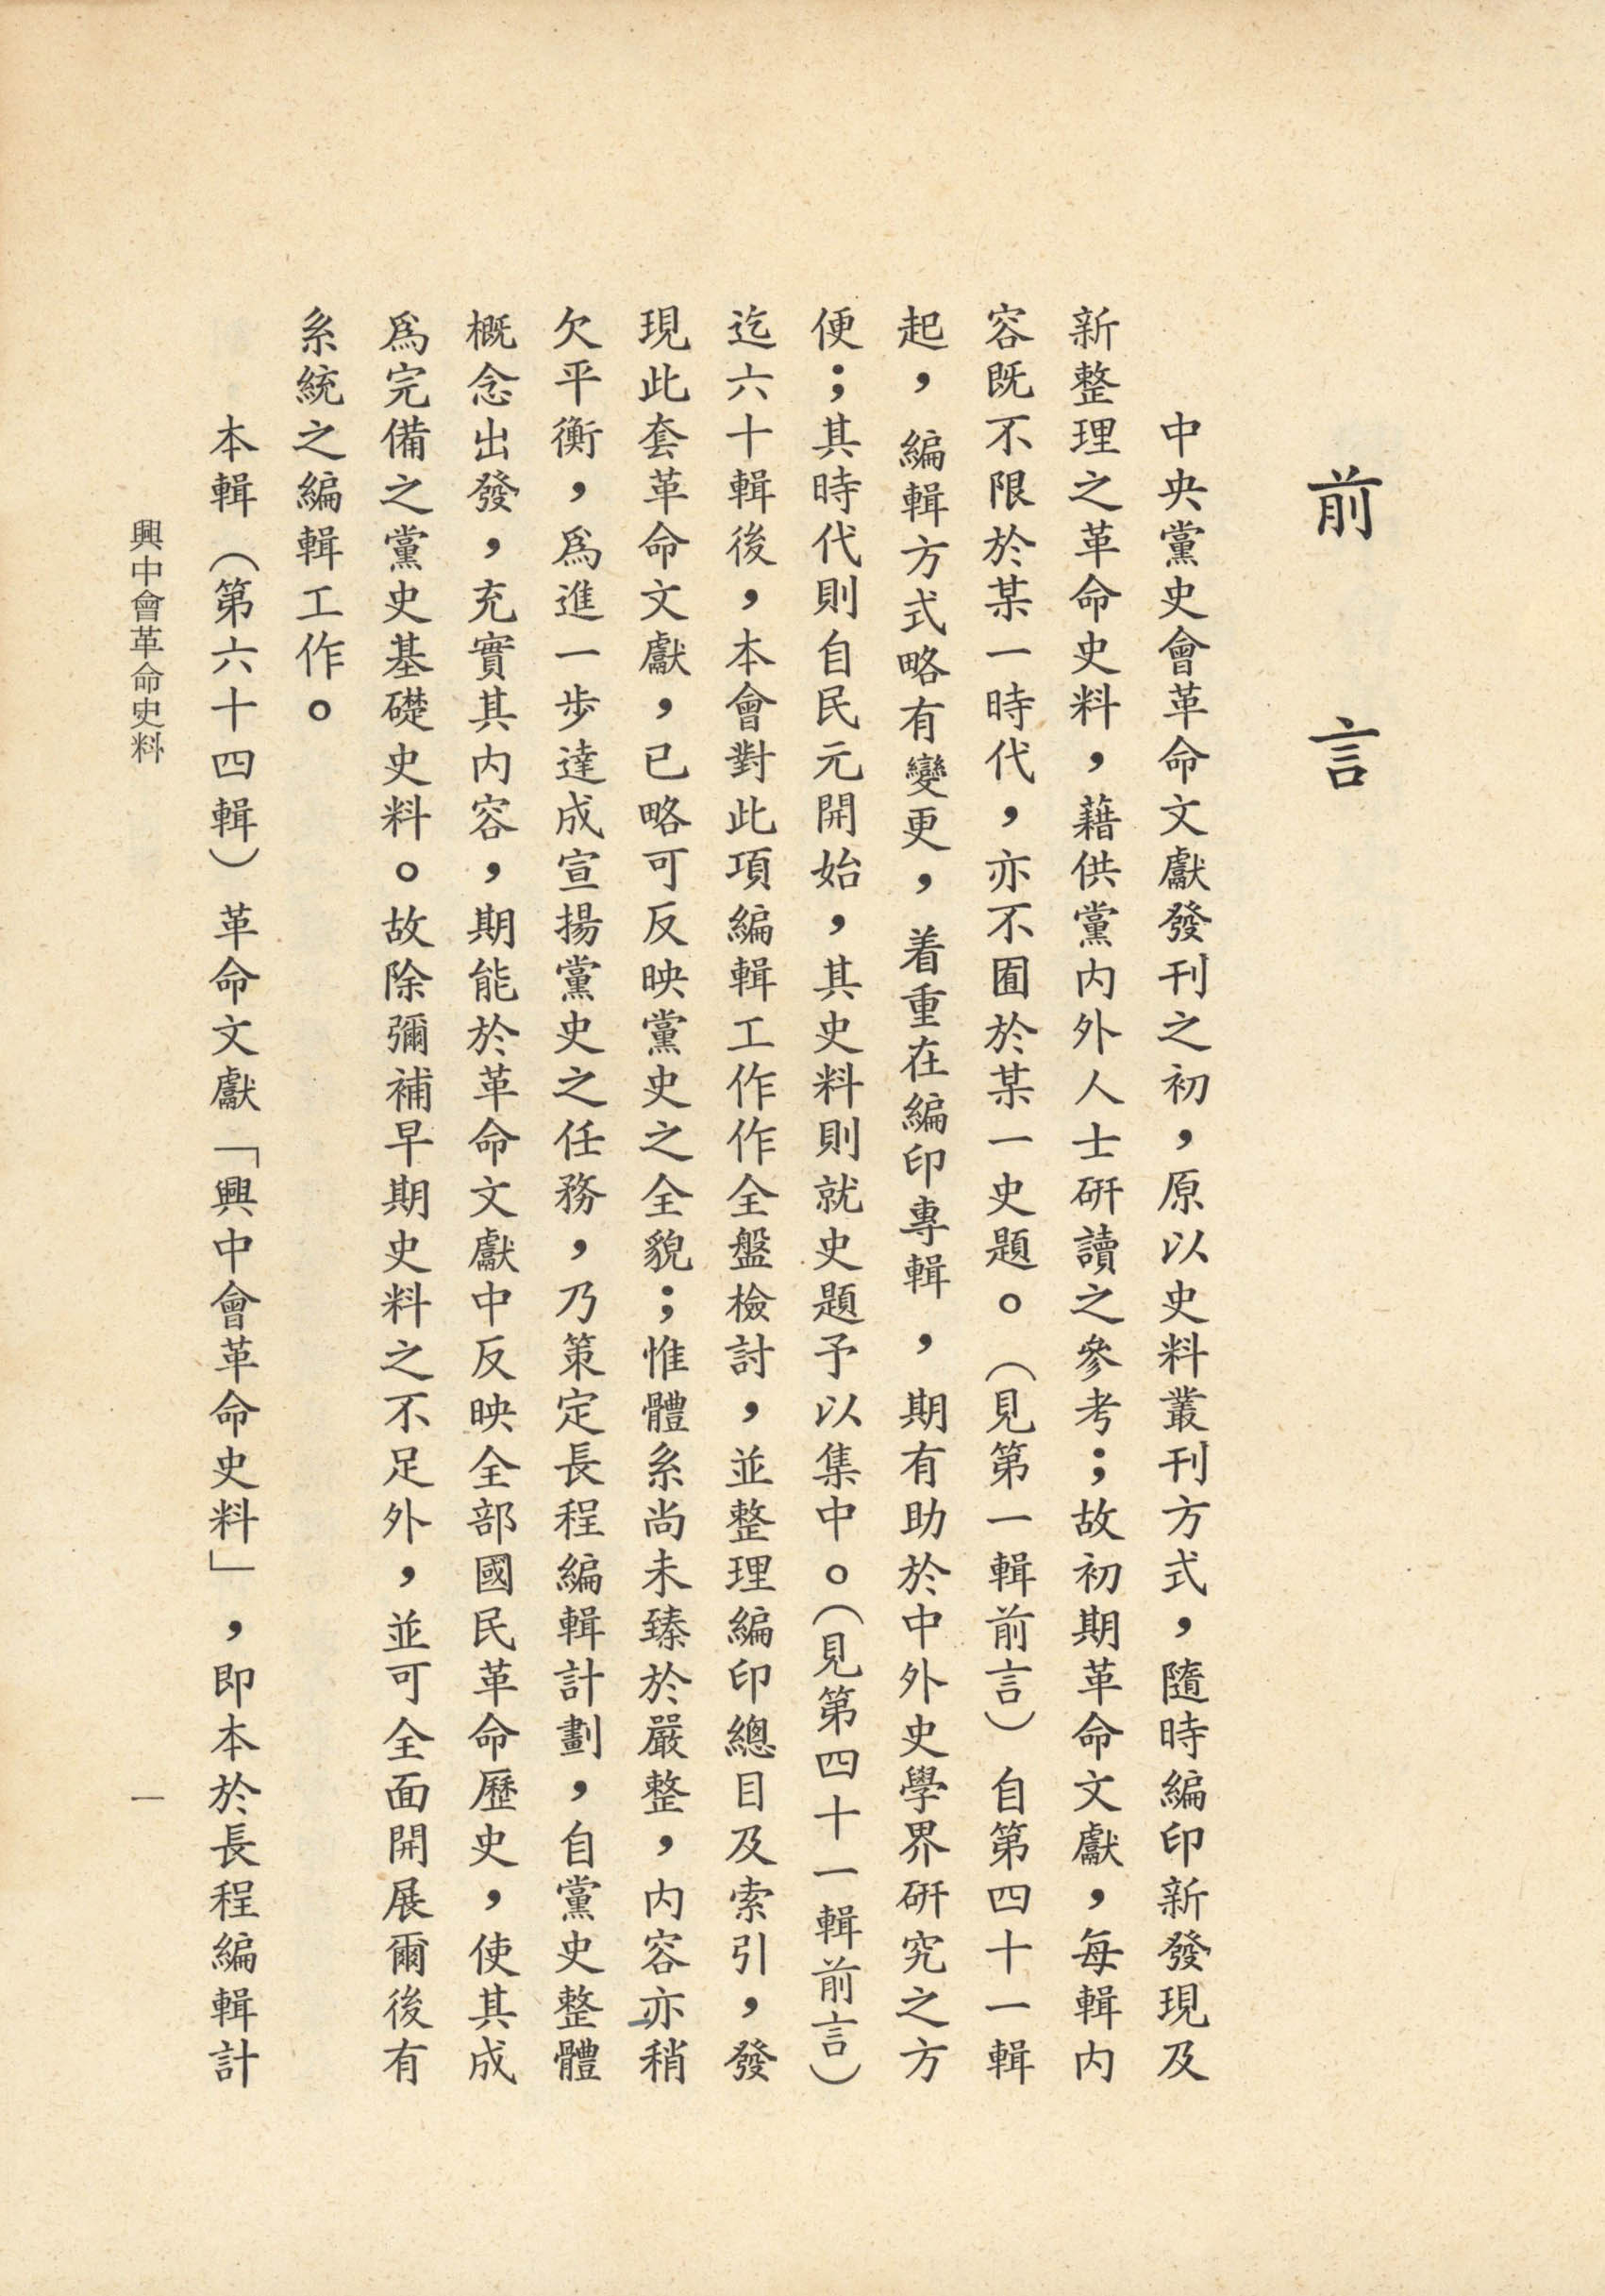 前言
中央黨史會革命文獻發刊之初，原以史料叢刊方式，隨時編印新發現及
新整理之革命史料，藉供黨內外人士研讀之參考；故初期革命文獻，每輯內
容既不限於某一時代，亦不囿於某一史題。（見第一輯前言）自第四十一輯
起，編輯方式略有變更，着重在編印專輯，期有助於中外史學界研究之方
便；其時代則自民元開始，其史料則就史題予以集中。（見第四十一輯前言）
迄六十輯後，本會對此項編輯工作作全盤檢討，並整理編印總目及索引，發
現此套革命文獻，已略可反映黨史之全貌；惟體系尚未臻於嚴整，內容亦稍
欠平衡，爲進一步達成宣揚黨史之任務，乃策定長程編輯計劃，自黨史整體
概念出發，充實其內容，期能於革命文獻中反映全部國民革命歷史，使其成
爲完備之黨史基礎史料。故除彌補早期史料之不足外，並可全面開展爾後有
系統之編輯工作。
本輯（第六十四輯）革命文獻「興中會革命史料」，即本於長程編輯計
興中會革命史料
一